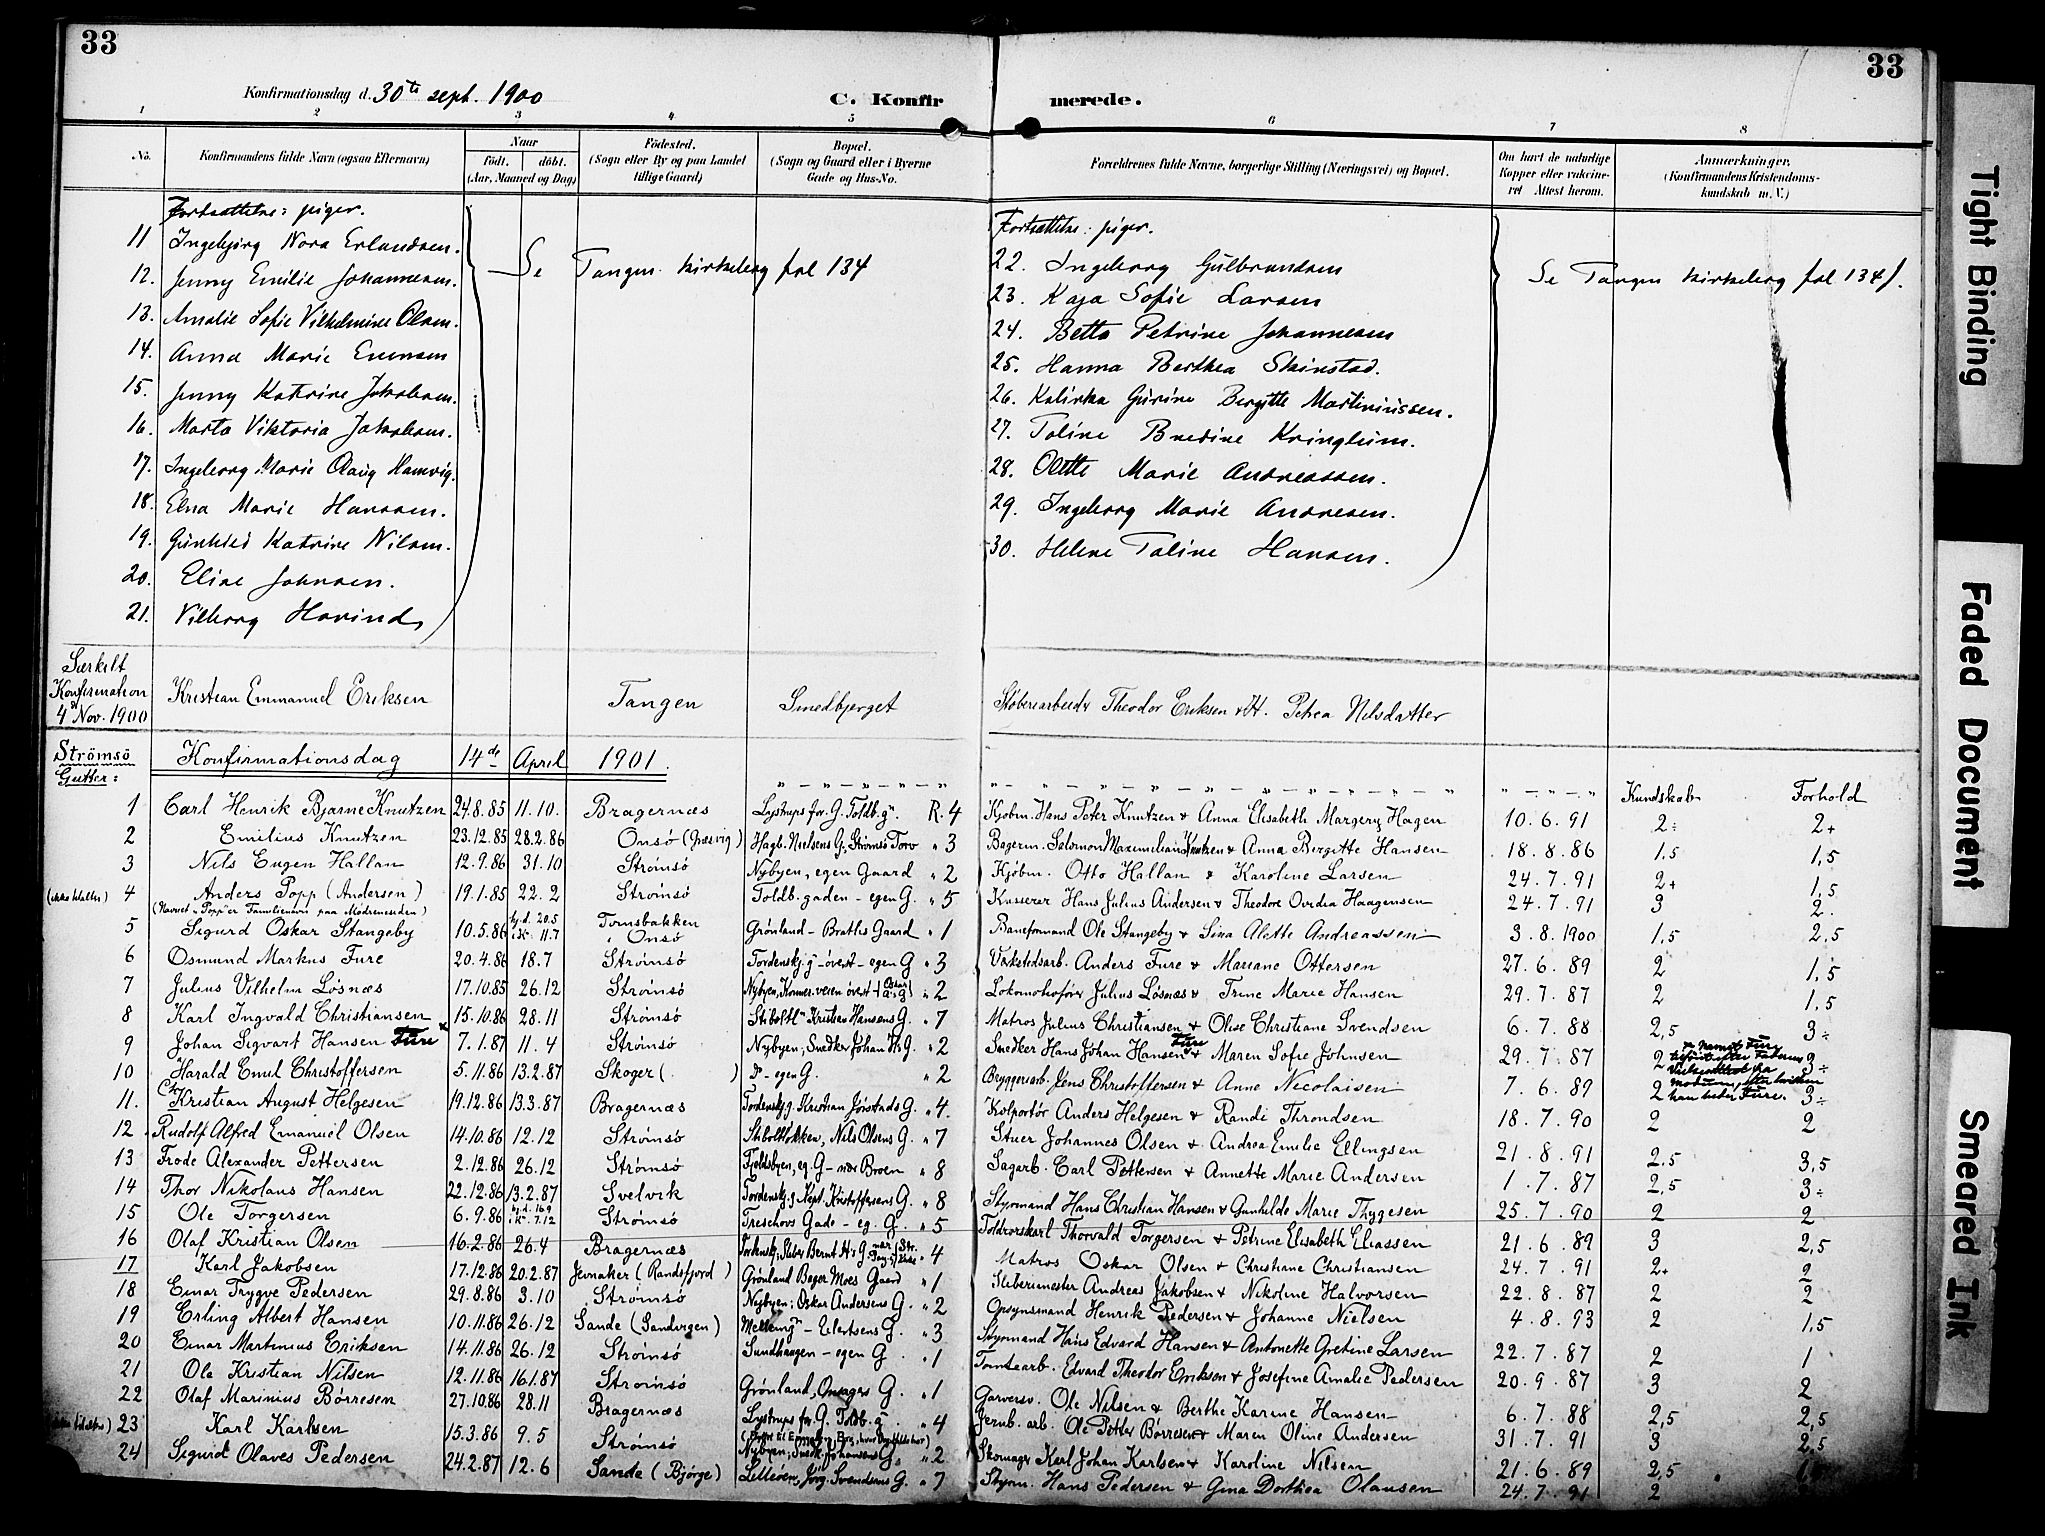 33
33
Konfirmationsdag d. 30te sept. 1900
C. Konfirmerede.
1 2 3 4 5 6 7 8
No.
Konfirmandens fulde Navn (ogsaa Efternavn)
Naar
födt. döbt.
(Aar, Maaned og Dag)
Födested.
(Sogn eller By og paa Landet
tillige Gaard)
Bopæl.
(Sogn og Gaard eller i Byerne
Gade og Hus-No.
Forældrenes fulde Navne, borgerlige Stilling (Næringsvei) og Bopæl.
Om havt de naturlige
Kopper eller vaccine-
ret Attest herom.
Anmærkninger.
(Konfirmandens Kristendoms-
kundskab m. V.)
Fortsættelse: piger.
11 Ingebjörg Nora Erlandsen.
12. Jenny Emilie Johannesen.
13. Amalie Sofie Vilhelmine Olsen.
14. Anna Marie Evensen
15. Jenny Katrine Jakobsen.
16. Marta Viktoria Jakobsen.
17. Ingeborg Marie Olaug Hamvig.
18. Elna Marie Hansen.
19. Gunhild Katrine Nilsen.
20. Elise Johnsen.
21. Vilborg Havind
Se Tangen kirkebog fol 134
Fortsættelse: piger.
22. Ingeborg Gulbrandsen
23. Kaja Sofie Larsen
24. Betta Petrine Johannesen
25. Hanna Berthea Skinstad.
26. Kalinka Gurine Bergitte Martiniussen.
27. Toline Bredine Kringlum.
28. Olette Marie Andreassen.
29. Ingeborg Marie Andresen.
30. Helene Taline Hansen.
Se Tangen kirkebog fol 134f.
Særkilt
Konfirmation
4 Nov. 1900
Kristian Emmanuel Eriksen Tangen Smedbjerget Theodor Eriksen & H. Petrea Nilsdatter
Strömsö
Gutter:
Konfirmationsdag 14de April 1901.
Kundskab Forhold
1 Carl Henrik Bjarne Knutzen 24.8.85 11.10. Bragernæs Lystrups for. G. Toldb. g. R. 4 Kjøbm. Hans Peter Knutzen & Anna Elisabeth Margery Hagen 10.6.91 2÷ 2+
2 Emilius Knutzen 23.12.85 28.2.86 Onsö (Græsvig) Hagb. Nielsens G. Strömsö Torv " 3 Bagerm. Salomon Maximilian Knutzen & Anna Birgitte Hansen 18.8.86 1.5 1,5
3 Nils Eugen Hallan 12.9.86 31.10 Strömsö Nybyen, egen Gaard " 2 Kjöbm. Otto Hallan & Karoline Larsen 24.7.91 2+ 1,5
4 Anders Popp (Andersen) 19.1.85 22.2 Strömsö Toldb. gaden - egen G. " 5 Kasserer Hans Julius Andersen & Theodore Ovidia Haagensen 24.7.91 3 2.
(Navnet "Popp" er Familienavn paa Mödrenesiden)
5 Sigurd Oskar Stangeby 10.5.86 hj.d. 20.5 i K. 11.7 Tornsbakken i Onsö Grönland - Braths Gaard " 1 Baneformand Ole Stangeby & Sina Alette Andreassen 3.8.1900 1,5 2,5
6 Osmund Markus Fure 20.4.86 18.7 Strömsö Tordenskj. g - överst - egen G " 3 Værkstedsarb. Anders Fure & Mariane Ottersen 27.6.89 2 1,5
7 Julius Vilhelm Lösnæs 17.10.85 26.12 Strömsö Nybyen, Konnerudveien överst " 2 Lokomotivförer Julius Lösnæs & Trine Marie Hansen 29.7.87 2 1,5
8 Karl Ingvald Christiansen 15.10.86 28.11 Strömsö Kristian Hansens G. " 7 Matros Julius Christiansen & Olise Christiane Svendsen 6.7.88 2,5 3÷
9 Johan Sigvart Hansen Fure 7.1.87 11.4 Strömsö Nybyen, Snedker Johan H's G. " 2 Snedker Hans Johan Hansen Fure & Maren Sofie Johnsen 29.7.87 2 3÷
10 Harald Emil Christoffersen 5.11.86 13.2.87 Skoger ( ) do - egen G. " 2 Bryggeriarb. Jens Christoffersen & Anne Nicolaisen 7.6.89 2 3÷
11. Kristian August Helgesen 19.12.86 13.3.87 Bragernæs Tordenskj. g. Kristian Jörstads G. " 4. Kolportör Anders Helgesen & Randi Throndsen 18.7.90 2 2
12 Rudolf Alfred Emanuel Olsen 14.10.86 12.12 Strömsö Stiboltlökken, Nils Olsens G. " 7 Stuer Johannes Olsen & Andrea Emilie Ellingsen 21.8.91 2.5 3,5
13 Frode Alexander Pettersen 2.12.86 26.12 Strömsö Fjeldsbyen, eg. G - nær Broen " 8 Sagarb. Carl Pettersen & Annette Marie Andersen 1.7.87 2,5 3÷
14 Thor Nikolaus Hansen 22.12.86 13.2.87 Svelvik Tordenskj. g. Kapt. Kristoffersens G. " 8 Styrmand Hans Christian Hansen & Gunhilde Marie Thygesen 25.7.90 2 2
15 Ole Torgersen 6.9.86 hj.d. 16.9 i K. 7.12 Strömsö Treschows Gade - eg. G. " 5 Toldrorskarl Thorvald Torgersen & Petrine Elisabeth Eliassen 21.6.89 3 2,5
16 Olaf Kristian Olsen 16.2.86 26.4 Bragernæs " 4 Matros Oskar Olsen & Christiane Christiansen 24.7.91 2+ 2
17 Karl Jakobsen 17.12.86 20.2.87 Jevnaker (Randsfjord) Grönland Bager Moes Gaard " 1 Sliberimester Andreas Jakobsen & Nikoline Halvorsen 22.8.87 2 2
18 Einar Trygve Pedersen 29.8.86 3.10 Strömsö Nybyen; Oskar Andersens G. " 2 Opsynsmand Henrik Pedersen & Johanne Nielsen 4.8.93 2 1,5
19 Erling Albert Hansen 10.11.86 26.12 Sande (Sandvigen) " 3 Styrmand Hans Edvard Hansen & Antonette Gretine Larsen 22.7.87 2 1
20 Einar Martinius Eriksen 14.11.86 26.12 Strömsö Sundhaugen - egen G " 1 Tomtearb. Edvard Theodor Eriksen & Josefine Amalie Pedersen 20.9.87 3 2
21 Ole Kristian Nilsen 12.11.86 16.1.87 Strömsö Grönland, Onsagers G. " 1 Garversv. Ole Nilsen & Berthe Karine Hansen 6.7.88 2,5 2,5
22 Olaf Marinius Börresen 27.10.86 28.11 Bragernæs Lystrups for. G. Toldb. g. " 4 Jernb. arb. Ole Petter Börresen & Maren Oline Andersen 31.7.91 3 2,5
23 Karl Karlsen 15.3.86 9.5 Strömsö " 2 Skomager Karl Johan Karlsen & Karoline Nilsen 21.6.89 2,5
24 Sigurd Olaves Pedersen 24.2.87 12.6 Sande (Björge) Jörg. Svendsens G. " 7 Styrm. Hans Pedersen & Gina Dorthea Olausen 24.7.91 2
Tight Binding
Faded Document
Smeared Ink